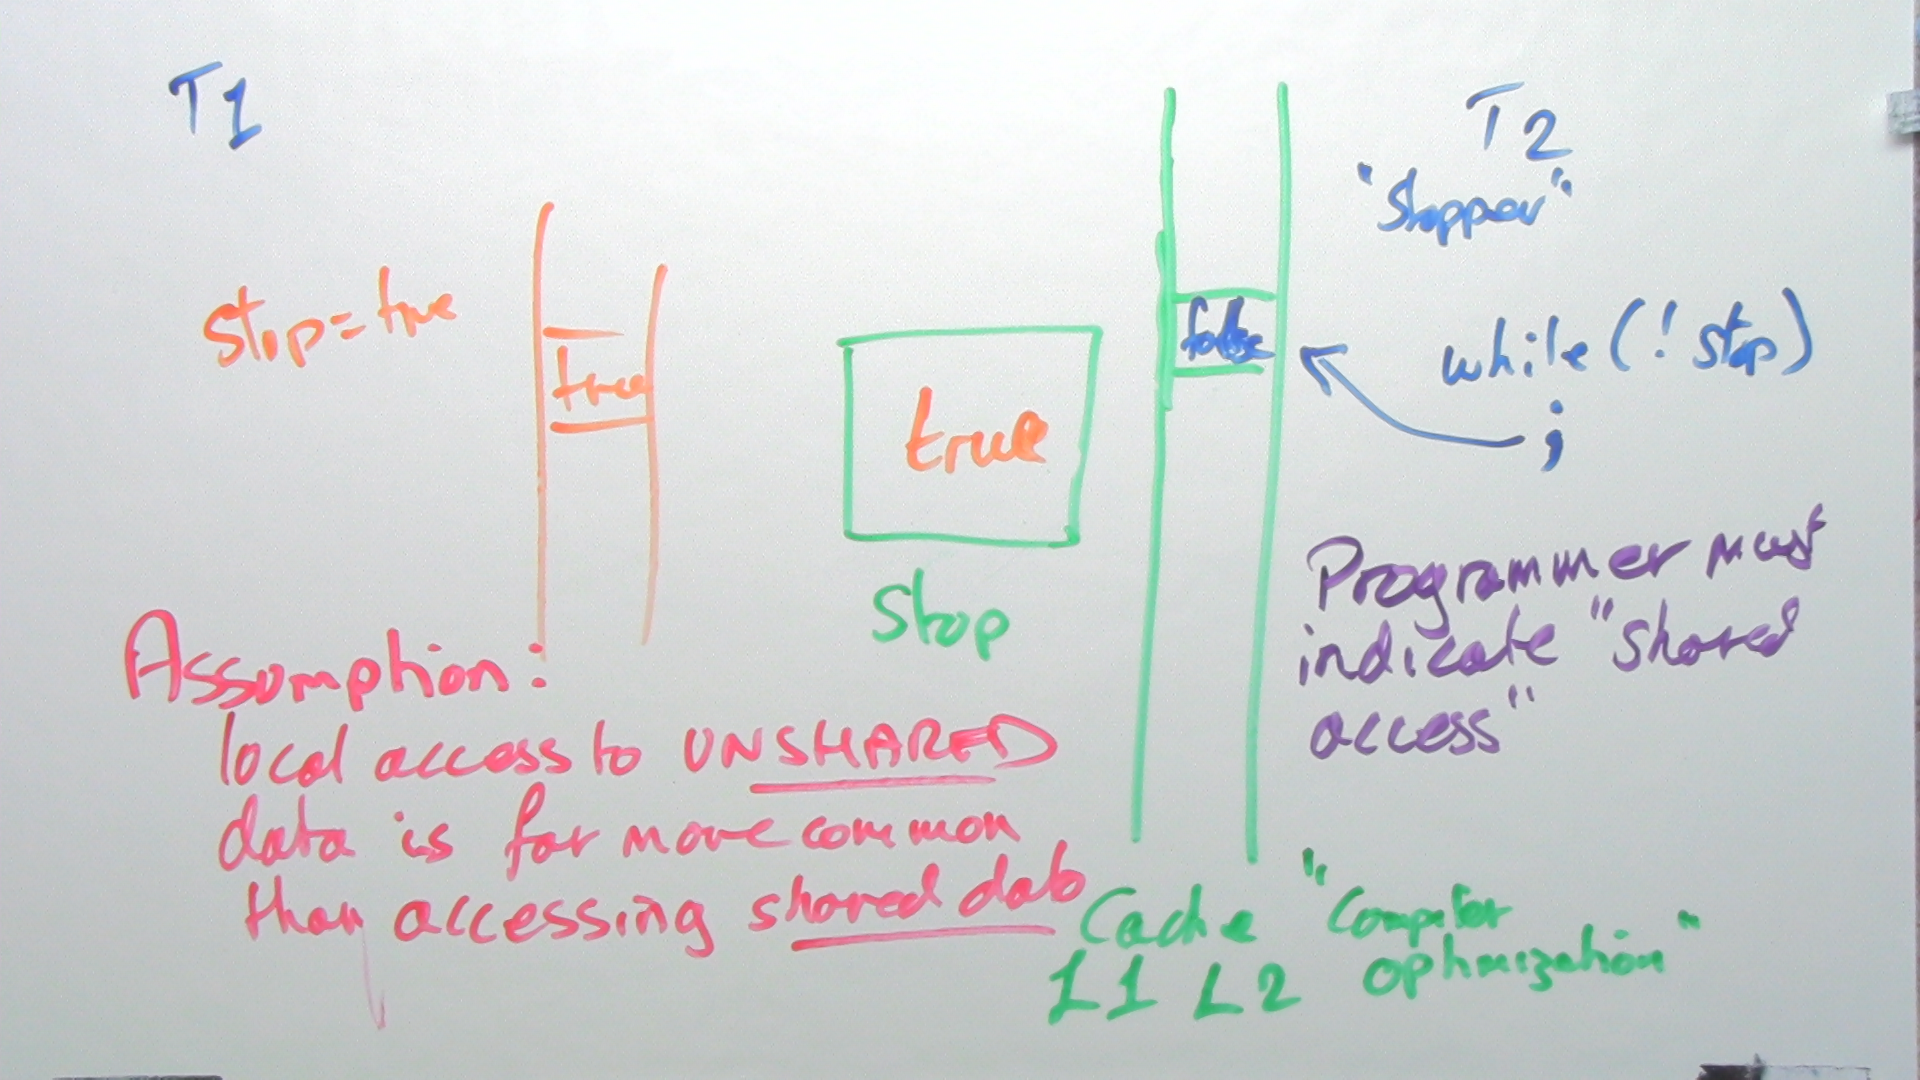 T1
T2
"Stopper"
stop=true
true
true
stop
false
while (! stop)
;
Programmer must
indicate "shared
access"
Assumption:
local access to UNSHARED
data is far more common
than accessing shared data
Cache
L1 L2
"Compiler
optimization"